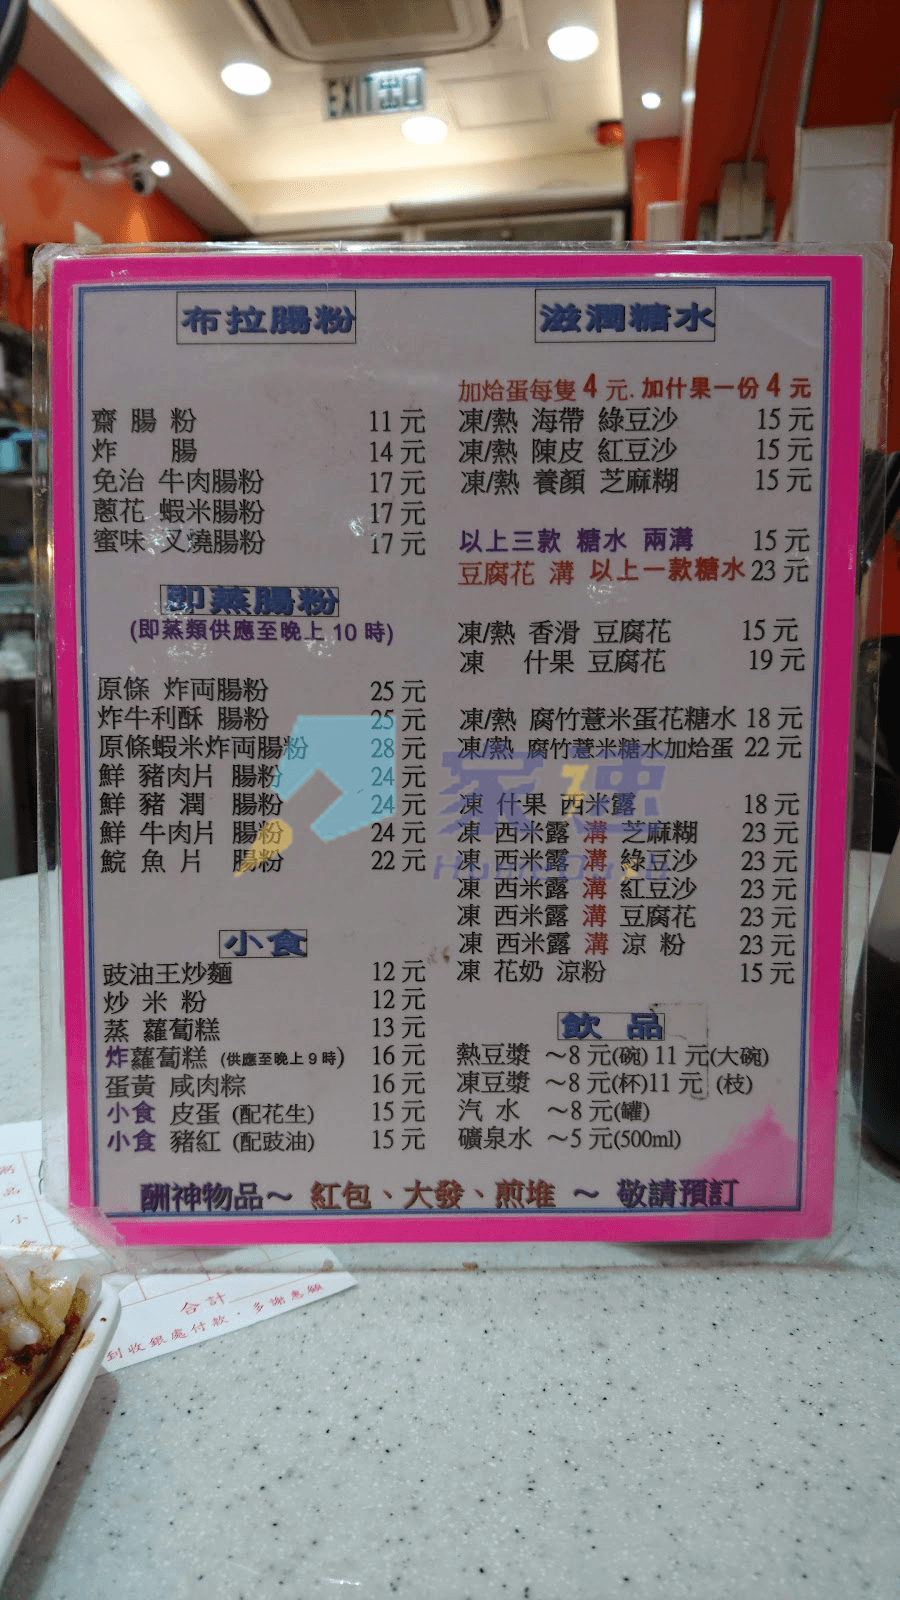 EXIT 出口
布拉腸粉
齋 腸 粉 11 元
炸 腸 14 元
免治 牛肉腸粉 17 元
蔥花 蝦米腸粉 17 元
蜜味 叉燒腸粉 17 元
即蒸腸粉
(即蒸類供應至晚上 10 時)
原條 炸両腸粉 25 元
炸牛利酥 腸粉 25 元
原條蝦米炸両腸粉 28 元
鮮 豬肉片 腸粉 24 元
鮮 豬 潤 腸粉 24 元
鮮 牛肉片 腸粉 24 元
鯇 魚 片 腸粉 22 元
小食
豉油王炒麵 12 元
炒 米 粉 12 元
蒸 蘿蔔糕 13 元
炸蘿蔔糕 (供應至晚上 9 時) 16 元
蛋黃 咸肉粽 16 元
小食 皮蛋 (配花生) 15 元
小食 豬紅 (配豉油) 15 元
滋潤糖水
加烚蛋每隻 4 元. 加什果一份 4 元
凍/熱 海帶 綠豆沙 15 元
凍/熱 陳皮 紅豆沙 15 元
凍/熱 養顏 芝麻糊 15 元
以上三款 糖水 兩溝 15 元
豆腐花 溝 以上一款糖水 23 元
凍/熱 香滑 豆腐花 15 元
凍 什果 豆腐花 19 元
凍/熱 腐竹薏米蛋花糖水 18 元
凍/熱 腐竹薏米糖水加烚蛋 22 元
凍 什果 西米露 18 元
凍 西米露 溝 芝麻糊 23 元
凍 西米露 溝 綠豆沙 23 元
凍 西米露 溝 紅豆沙 23 元
凍 西米露 溝 豆腐花 23 元
凍 西米露 溝 涼 粉 23 元
凍 花奶 涼粉 15 元
飲 品
熱豆漿 ～8 元(碗) 11 元(大碗)
凍豆漿 ～8 元(杯)11 元 (枝)
汽 水 ～8 元(罐)
礦泉水 ～5 元(500ml)
酬神物品～ 紅包、大發、煎堆 ～ 敬請預訂
家速
HomeDash
合計
到收銀處付款．多謝惠顧